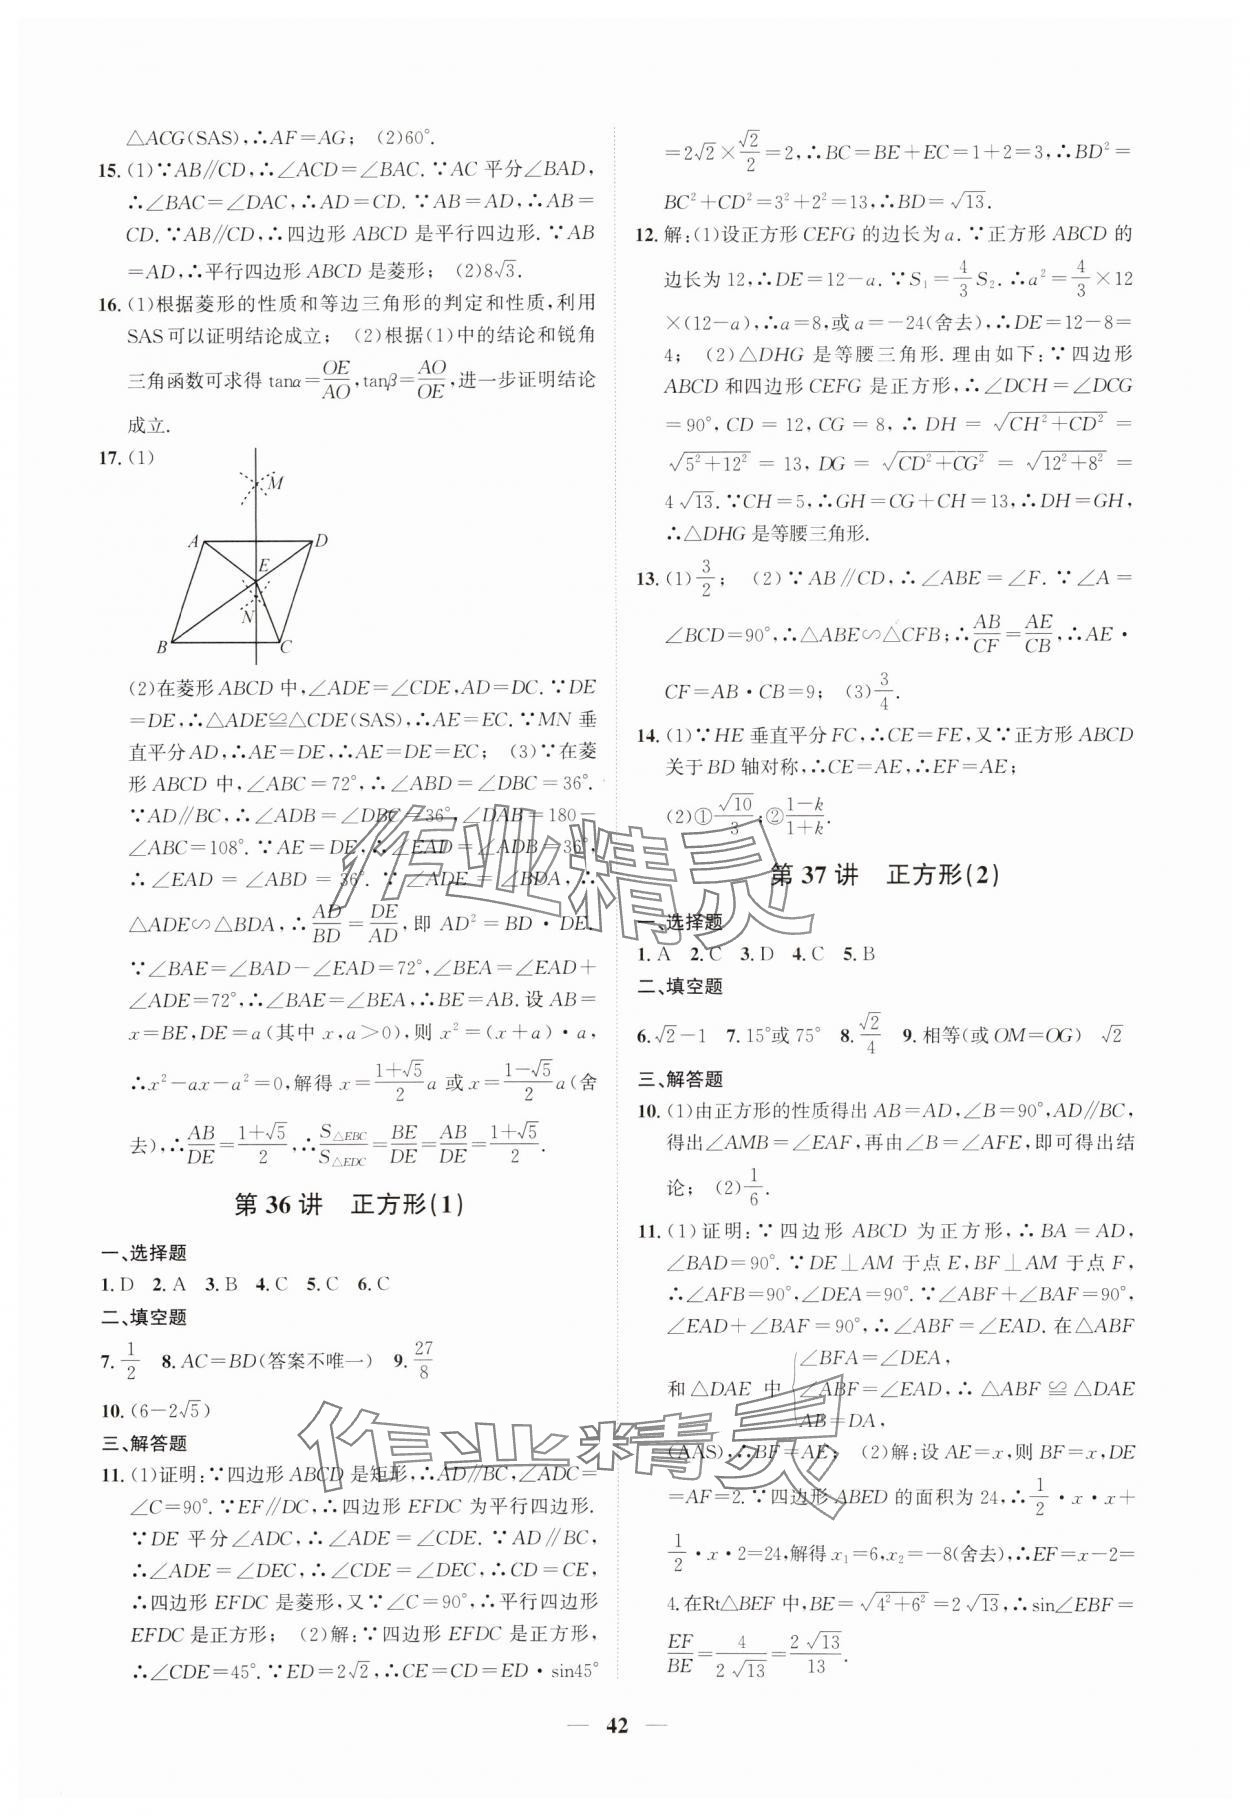 △ACG(SAS),∴AF=AG; (2)60°.
15.(1)∵AB∥CD,∴∠ACD=∠BAC.∵AC 平分∠BAD,
∴∠BAC=∠DAC,∴AD=CD.∵AB=AD,∴AB=
CD.∵AB∥CD,∴四边形 ABCD 是平行四边形.∵AB
=AD,∴平行四边形 ABCD 是菱形; (2)8√3.
16.(1)根据菱形的性质和等边三角形的判定和性质,利用
SAS 可以证明结论成立; (2)根据(1)中的结论和锐角
三角函数可求得 tanα=OE/AO,tanβ=AO/OE,进一步证明结论
成立.
17.(1)
M
A
D
E
N
B
C
(2)在菱形 ABCD 中,∠ADE=∠CDE,AD=DC.∵DE
=DE,∴△ADE≌△CDE(SAS),∴AE=EC.∵MN 垂
直平分 AD,∴AE=DE,∴AE=DE=EC; (3)∵在菱
形 ABCD 中,∠ABC=72°,∴∠ABD=∠DBC=36°.
∵AD∥BC,∴∠ADB=∠DBC=36°,∠DAB=180-
∠ABC=108°.∵AE=DE,∴∠EAD=∠ADB=36°,
∴∠EAD=∠ABD=36°.∵∠ADE=∠BDA,∴
△ADE∽△BDA,∴AD/BD=DE/AD,即 AD²=BD·DE.
∵∠BAE=∠BAD-∠EAD=72°,∠BEA=∠EAD+
∠ADE=72°,∴∠BAE=∠BEA,∴BE=AB.设 AB=
x=BE,DE=a(其中 x,a>0),则 x²=(x+a)·a,
∴x²-ax-a²=0,解得 x=(1+√5)/2 a 或 x=(1-√5)/2 a(舍
去),∴AB/DE=(1+√5)/2,∴S△EBC/S△EDC=BE/DE=AB/DE=(1+√5)/2.
第 36 讲 正方形(1)
一、选择题
1.D 2.A 3.B 4.C 5.C 6.C
二、填空题
7.1/2 8.AC=BD(答案不唯一) 9.27/8
10.(6-2√5)
三、解答题
11.(1)证明:∵四边形 ABCD 是矩形,∴AD∥BC,∠ADC=
∠C=90°.∵EF∥DC,∴四边形 EFDC 为平行四边形.
∵DE 平分∠ADC,∴∠ADE=∠CDE.∵AD∥BC,
∴∠ADE=∠DEC,∴∠CDE=∠DEC,∴CD=CE,
∴四边形 EFDC 是菱形,又∵∠C=90°,∴平行四边形
EFDC 是正方形; (2)解:∵四边形 EFDC 是正方形,
∴∠CDE=45°.∵ED=2√2,∴CE=CD=ED·sin45°
=2√2×√2/2=2,∴BC=BE+EC=1+2=3,∴BD²=
BC²+CD²=3²+2²=13,∴BD=√13.
12.解:(1)设正方形 CEFG 的边长为 a.∵正方形 ABCD 的
边长为 12,∴DE=12-a.∵S₁=4/3 S₂.∴a²=4/3×12
×(12-a),∴a=8,或 a=-24(舍去),∴DE=12-8=
4; (2)△DHG 是等腰三角形.理由如下:∵四边形
ABCD 和四边形 CEFG 是正方形,∴∠DCH=∠DCG
=90°,CD=12,CG=8,∴DH=√(CH²+CD²)=
√(5²+12²)=13,DG=√(CD²+CG²)=√(12²+8²)=
4√13.∵CH=5,∴GH=CG+CH=13,∴DH=GH,
∴△DHG 是等腰三角形.
13.(1)3/2; (2)∵AB∥CD,∴∠ABE=∠F.∵∠A=
∠BCD=90°,∴△ABE∽△CFB;∴AB/CF=AE/CB,∴AE·
CF=AB·CB=9; (3)3/4.
14.(1)∵HE 垂直平分 FC,∴CE=FE,又∵正方形 ABCD
关于 BD 轴对称,∴CE=AE,∴EF=AE;
(2)①√10/3;②(1-k)/(1+k).
第 37 讲 正方形(2)
一、选择题
1.A 2.C 3.D 4.C 5.B
二、填空题
6.√2-1 7.15°或 75° 8.√2/4 9.相等(或 OM=OG) √2
三、解答题
10.(1)由正方形的性质得出 AB=AD,∠B=90°,AD∥BC,
得出∠AMB=∠EAF,再由∠B=∠AFE,即可得出结
论; (2)1/6.
11.(1)证明:∵四边形 ABCD 为正方形,∴BA=AD,
∠BAD=90°.∵DE⊥AM 于点 E,BF⊥AM 于点 F,
∴∠AFB=90°,∠DEA=90°.∵∠ABF+∠BAF=90°,
∠EAD+∠BAF=90°,∴∠ABF=∠EAD.在△ABF
∠BFA=∠DEA,
和△DAE 中 ∠ABF=∠EAD,∴△ABF≌△DAE
AB=DA,
(AAS),∴BF=AE; (2)解:设 AE=x,则 BF=x,DE
=AF=2.∵四边形 ABED 的面积为 24,∴1/2·x·x+
1/2·x·2=24,解得 x₁=6,x₂=-8(舍去),∴EF=x-2=
4.在Rt△BEF 中,BE=√(4²+6²)=2√13,∴sin∠EBF=
EF/BE=4/(2√13)=2√13/13.
作业精灵
作业精灵
— 42 —